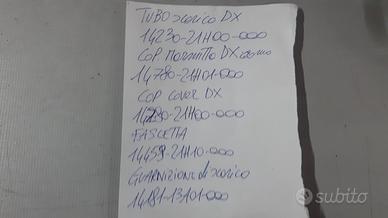 TUBO scarico DX
14230-21H00-000
COP MARMITTA DX
14780-21H01-000
COP COVER DX
-21H00-000
FASCETTA
14459-21H10-000
GUARNIZIONE di scarico
14181-13101-000
subito